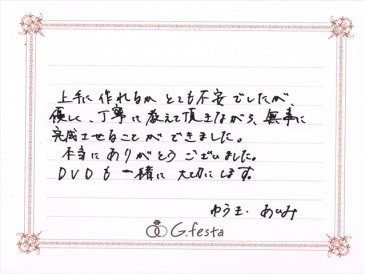 上手に作れるか とても不安でしたが、
優しく、丁寧に教えて頂きながら、無事に
完成させることができました。
本当にありがとうございました。
DVDも一緒に大切にします。
ゆうき・あゆみ
G.festa